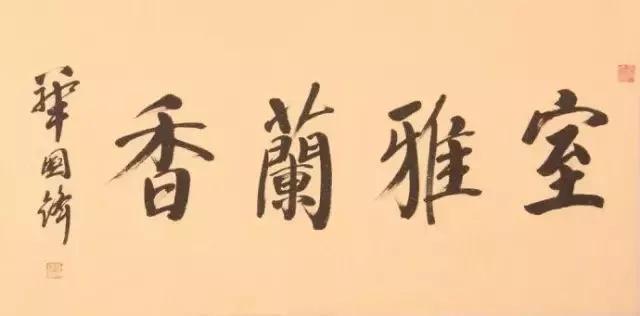 室雅蘭香
華國鋒